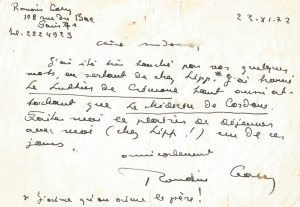 Romain Gary
108 rue du Bac
Paris 7e
tel. 2224923
23.XI.72
chère madame,
J'ai été très touché par vos quelques
mots, en sortant de chez Lipp* j'ai trouvé
Le Luthier de Crémone tout aussi
touchant que Le Médecin de Cordoue.
Faites-moi le plaisir de déjeuner
avec moi (chez Lipp!) un de ces
jours
amicalement
Romain Gary
* J'aime qu'on aime le père!